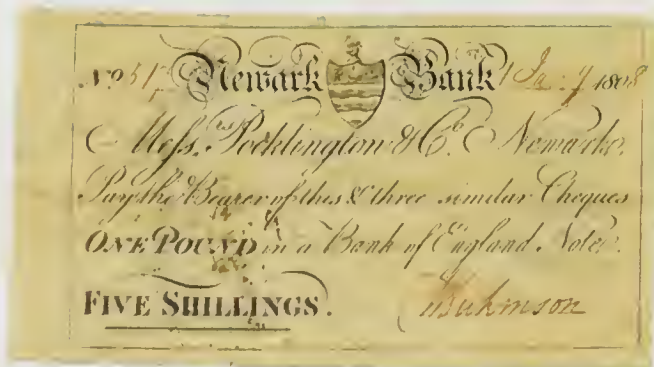 No 51 Newark Bank 1 Jay 1808
Messrs Pocklington & Co Newark.
Pay the Bearer of this & three similar Cheques
ONE POUND in a Bank of England Note.
FIVE SHILLINGS.